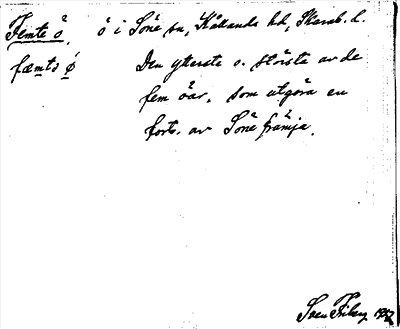 Femte ö. ö i Söne sn, Kållands hd, Skarab. l.
fæmtə ø̀ Den ytterste o. största av de
fem öar, som utgöra en
forts. av Söne främja.
Sven Friberg